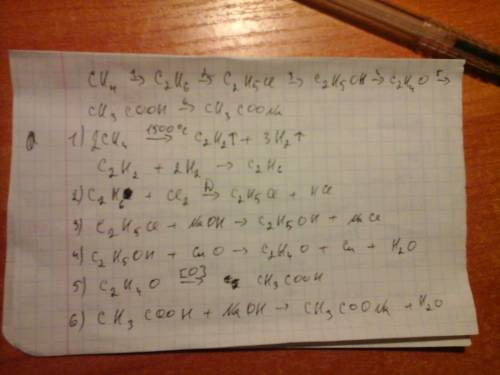 CH₄ ¹→ C₂H₆ ²→ C₂H₅Cl ³→ C₂H₅OH ⁴→ C₂H₄O ⁵→
CH₃COOH ⁶→ CH₃COONa
1) 2CH₄ 1500°C→ C₂H₂↑ + 3H₂↑
C₂H₂ + 2H₂ → C₂H₆
2) C₂H₆ + Cl₂ → C₂H₅Cl + HCl
3) C₂H₅Cl + NaOH → C₂H₅OH + NaCl
4) C₂H₅OH + CuO → C₂H₄O + Cu + H₂O
5) C₂H₄O [O]→ CH₃COOH
6) CH₃COOH + NaOH → CH₃COONa + H₂O